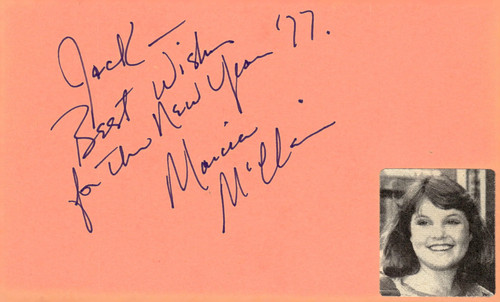 Jack —
Best Wishes
for the New Year '77.
Marcia
McClain